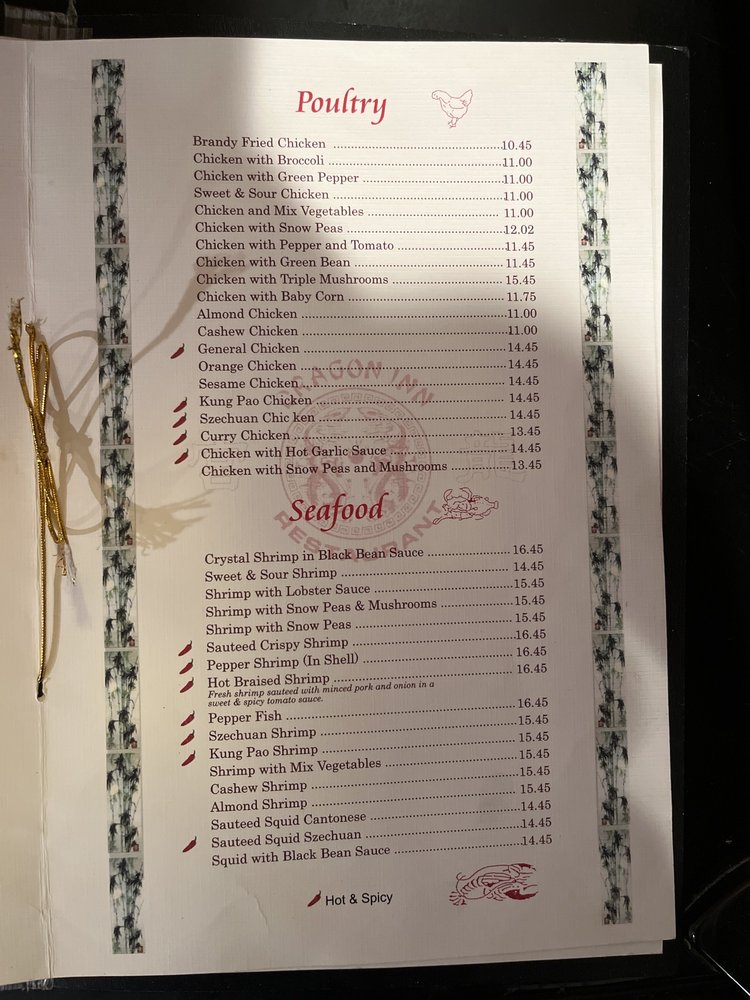 Poultry
Brandy Fried Chicken ........ 10.45
Chicken with Broccoli ........ 11.00
Chicken with Green Pepper ........ 11.00
Sweet & Sour Chicken ........ 11.00
Chicken and Mix Vegetables ........ 11.00
Chicken with Snow Peas ........ 12.02
Chicken with Pepper and Tomato ........ 11.45
Chicken with Green Bean ........ 11.45
Chicken with Triple Mushrooms ........ 15.45
Chicken with Baby Corn ........ 11.75
Almond Chicken ........ 11.00
Cashew Chicken ........ 11.00
General Chicken ........ 14.45
Orange Chicken ........ 14.45
Sesame Chicken ........ 14.45
Kung Pao Chicken ........ 14.45
Szechuan Chic ken ........ 14.45
Curry Chicken ........ 13.45
Chicken with Hot Garlic Sauce ........ 14.45
Chicken with Snow Peas and Mushrooms ........ 13.45
DRAGON INN
RESTAURANT
Seafood
Crystal Shrimp in Black Bean Sauce ........ 16.45
Sweet & Sour Shrimp ........ 14.45
Shrimp with Lobster Sauce ........ 15.45
Shrimp with Snow Peas & Mushrooms ........ 15.45
Shrimp with Snow Peas ........ 15.45
Sauteed Crispy Shrimp ........ 16.45
Pepper Shrimp (In Shell) ........ 16.45
Hot Braised Shrimp ........ 16.45
Fresh shrimp sauteed with minced pork and onion in a
sweet & spicy tomato sauce.
Pepper Fish ........ 16.45
Szechuan Shrimp ........ 15.45
Kung Pao Shrimp ........ 15.45
Shrimp with Mix Vegetables ........ 15.45
Cashew Shrimp ........ 15.45
Almond Shrimp ........ 15.45
Sauteed Squid Cantonese ........ 14.45
Sauteed Squid Szechuan ........ 14.45
Squid with Black Bean Sauce ........ 14.45
Hot & Spicy